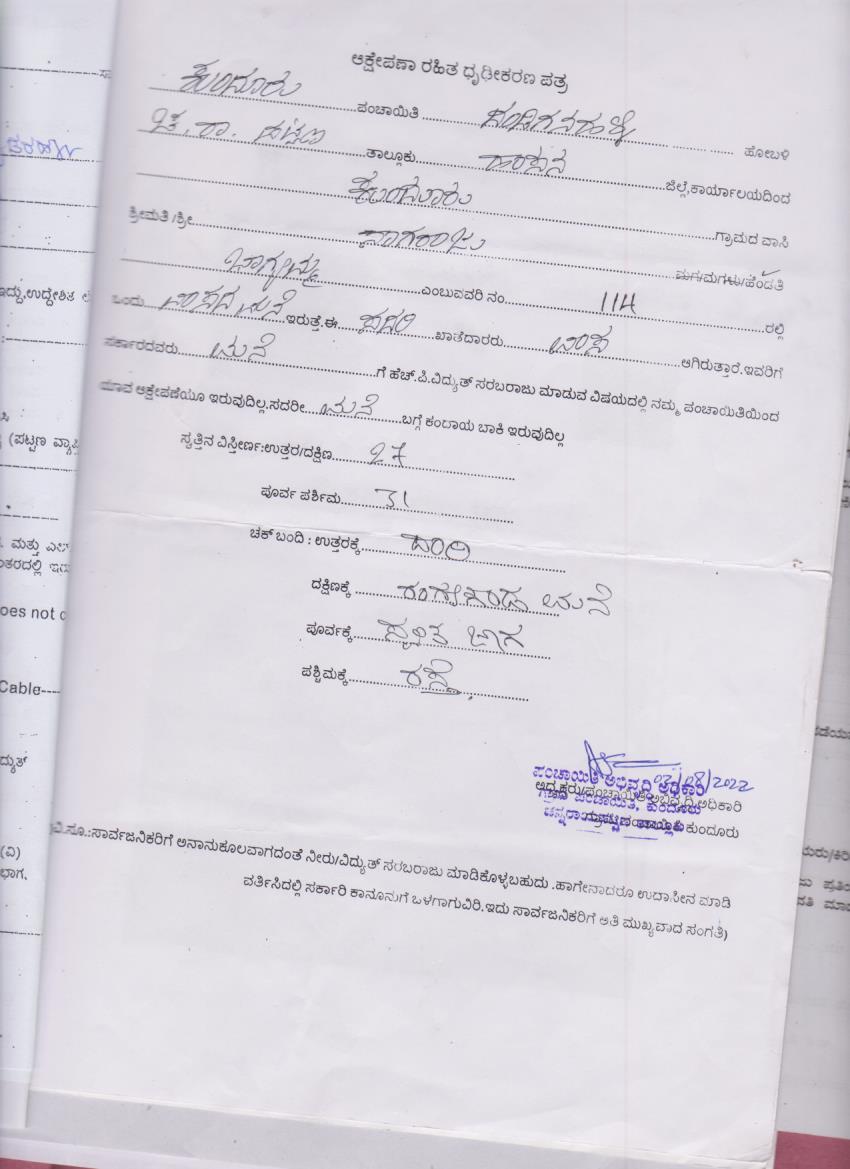 ಆಕ್ಷೇಪಣಾ ರಹಿತ ಧೃಡೀಕರಣ ಪತ್ರ
ಕುಂದೂರು ಪಂಚಾಯಿತಿ ದಂಡಿಗನಹಳ್ಳಿ ಹೋಬಳಿ
ಚ. ರಾ. ಪಟ್ಟಣ ತಾಲ್ಲೂಕು ಹಾಸನ ಜಿಲ್ಲೆ,ಕಾರ್ಯಾಲಯದಿಂದ
ಕುಂದೂರು ಗ್ರಾಮದ ವಾಸಿ
ಶ್ರೀಮತಿ/ಶ್ರೀ ನಾಗರಾಜು ಮಗ/ಮಗಳು/ಹೆಂಡತಿ
ಭಾಗ್ಯಮ್ಮ ಎಂಬುವವರಿ ನಂ. 114 ರಲ್ಲಿ
ಒಂದು ವಾಸದ ಮನೆ ಇರುತ್ತೆ.ಈ ಸದರಿ ಖಾತೆದಾರರು ವಾಸ ಆಗಿರುತ್ತಾರೆ.ಇವರಿಗೆ
ಸರ್ಕಾರದವರು ಮನೆ ಗೆ ಹೆಚ್.ಪಿ.ವಿದ್ಯುತ್ ಸರಬರಾಜು ಮಾಡುವ ವಿಷಯದಲ್ಲಿ ನಮ್ಮ ಪಂಚಾಯಿತಿಯಿಂದ
ಯಾವ ಆಕ್ಷೇಪಣೆಯೂ ಇರುವುದಿಲ್ಲ.ಸದರೀ ಮನೆ ಬಗ್ಗೆ ಕಂದಾಯ ಬಾಕಿ ಇರುವುದಿಲ್ಲ
ಸ್ವತ್ತಿನ ವಿಸ್ತೀರ್ಣ:ಉತ್ತರ/ದಕ್ಷಿಣ 27
ಪೂರ್ವ ಪರ್ಶಿಮ 31
ಚಕ್ ಬಂದಿ : ಉತ್ತರಕ್ಕೆ ದಾರಿ
ದಕ್ಷಿಣಕ್ಕೆ ಮನೆ
ಪೂರ್ವಕ್ಕೆ ಭಾಗ
ಪಶ್ಚಿಮಕ್ಕೆ ರಸ್ತೆ
02/08/2022
ಪಂಚಾಯಿತಿ ಅಭಿವೃದ್ಧಿ ಅಧಿಕಾರಿ
ಅಧ್ಯಕ್ಷರು/ಪಂಚಾಯಿತಿ ಅಭಿವೃದ್ಧಿ ಅಧಿಕಾರಿ
ಗ್ರಾಮ ಪಂಚಾಯಿತಿ, ಕುಂದೂರು
ಕುಂದೂರು
(ವಿ.ಸೂ.:ಸಾರ್ವಜನಿಕರಿಗೆ ಅನಾನುಕೂಲವಾಗದಂತೆ ನೀರು/ವಿದ್ಯುತ್ ಸರಬರಾಜು ಮಾಡಿಕೊಳ್ಳಬಹುದು .ಹಾಗೇನಾದರೂ ಉದಾಸೀನ ಮಾಡಿ
ವರ್ತಿಸಿದಲ್ಲಿ ಸರ್ಕಾರಿ ಕಾನೂನುಗೆ ಒಳಗಾಗುವಿರಿ.ಇದು ಸಾರ್ವಜನಿಕರಿಗೆ ಅತಿ ಮುಖ್ಯವಾದ ಸಂಗತಿ)
ಇದ್ದು,ಉದ್ದೇಶಿತ
(ಪಟ್ಟಣ
ಮತ್ತು
oes not
Cable----
(ವಿ)
ಭಾಗ.